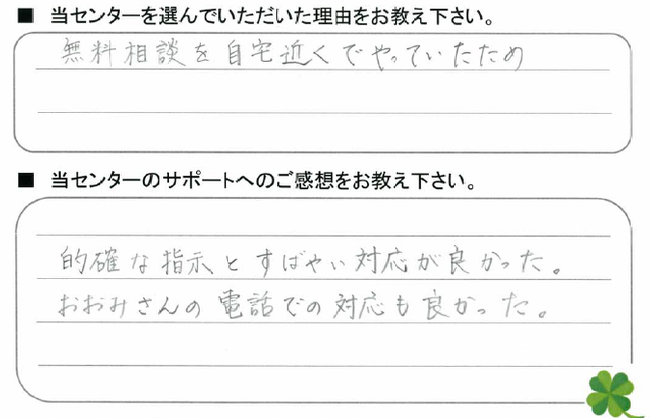 ■ 当センターを選んでいただいた理由をお教え下さい。
無料相談を自宅近くでやっていたため
■ 当センターのサポートへのご感想をお教え下さい。
的確な指示とすばやい対応が良かった。
おおみさんの電話での対応も良かった。